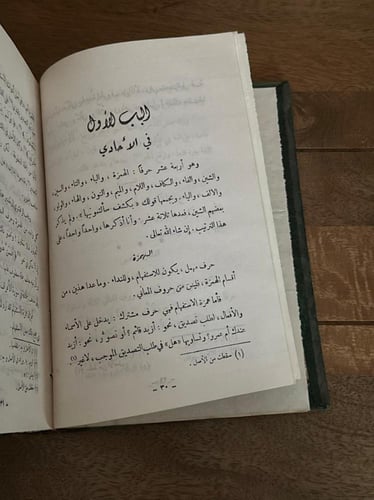 الباب الأول
في الأحادي
وهو أربعة عشر حرفاً: الهمزة، والباء، والتاء، والسين،
والشين، والفاء، والكاف، واللام، والميم، والنون، والهاء، والواو،
والألف، والياء. ويجمعها قولك «بكشف سألتمونيها». ولم يذكر
بعضهم الشين، فعدها ثلاثة عشر. وأنا أذكرها، واحداً واحداً، على
هذا الترتيب، إن شاء الله تعالى.
الهمزة
حرف مهمل، يكون للاستفهام، وللنداء. وما عدا هذين، من
أقسام الهمزة، فليس من حروف المعاني.
فأما همزة الاستفهام فهي حرف مشترك: يدخل على الأسماء
والأفعال، لطلب تصديق، نحو: أزيد قائم؟ أو تصور، نحو: أزيد
عندك أم عمرو؟ وتساويها «هل» في طلب التصديق الموجب، لا غير(١)
(١) سقطت من الأصل.
- ٣٠ -